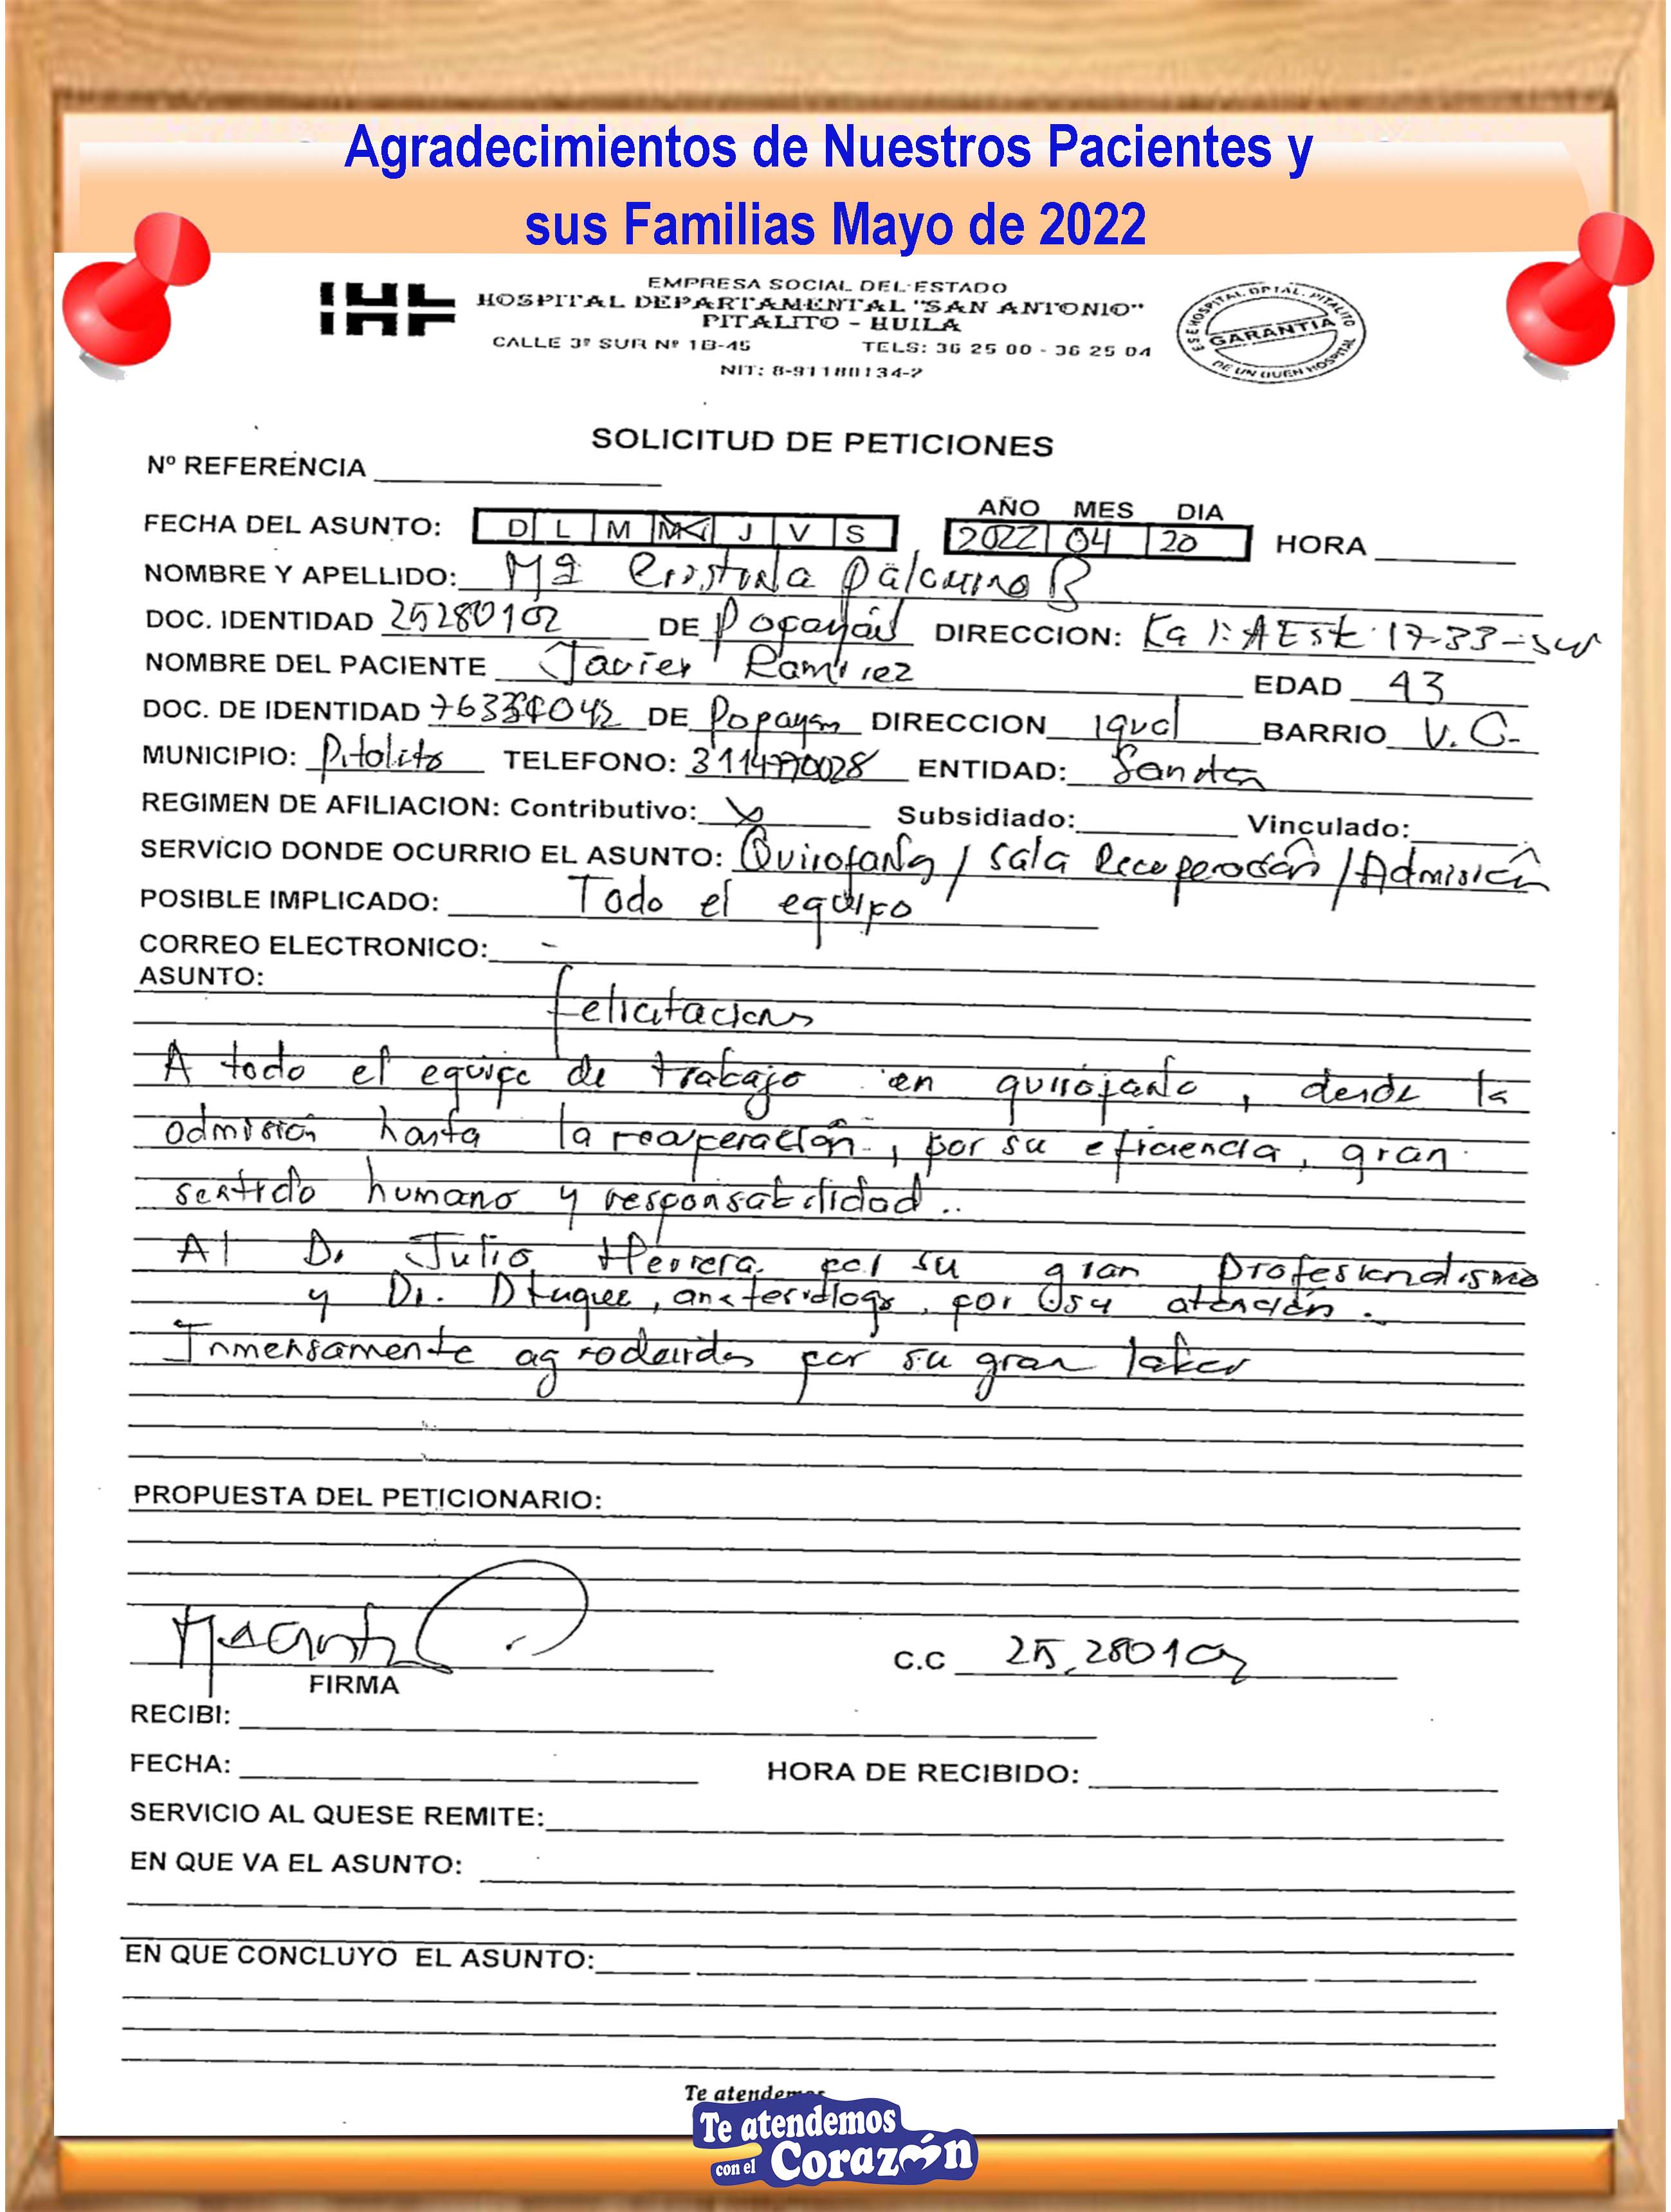 Agradecimientos de Nuestros Pacientes y
sus Familias Mayo de 2022
EMPRESA SOCIAL DEL ESTADO
HOSPITAL DEPARTAMENTAL "SAN ANTONIO"
PITALITO - HUILA
CALLE 3ª SUR Nº 1B-45 TELS: 36 25 00 - 36 25 04
NIT: 8-91180134-2
E S E HOSPITAL DPTAL. PITALITO
GARANTIA
DE UN BUEN HOSPITAL
SOLICITUD DE PETICIONES
Nº REFERENCIA
AÑO MES DIA
FECHA DEL ASUNTO: D L M M J V S 2022 04 20 HORA
NOMBRE Y APELLIDO: Mª Cristina Palomino B
DOC. IDENTIDAD 25280102 DE Popayán DIRECCION: Ka 1: A Este 17-33-sur
NOMBRE DEL PACIENTE Javier Ramirez EDAD 43
DOC. DE IDENTIDAD DE Popayan DIRECCION igual BARRIO V. C.
MUNICIPIO: Pitalito TELEFONO: 3114770028 ENTIDAD:
REGIMEN DE AFILIACION: Contributivo: X Subsidiado: Vinculado:
SERVICIO DONDE OCURRIO EL ASUNTO: Quirofano / Sala Recuperación / Admisión
POSIBLE IMPLICADO: Todo el equipo
CORREO ELECTRONICO: -
ASUNTO:
felicitaciones
A todo el equipo de trabajo en quirófano, desde la
admisión hasta la recuperación, por su eficiencia, gran
sentido humano y responsabilidad..
Al Dr Julio Herrera por su gran profesionalismo
y Dr. Duque, por su atención.
Inmensamente agradecidos por su gran labor
PROPUESTA DEL PETICIONARIO:
FIRMA C.C
RECIBI:
FECHA: HORA DE RECIBIDO:
SERVICIO AL QUESE REMITE:
EN QUE VA EL ASUNTO:
EN QUE CONCLUYO EL ASUNTO:
Te atendemos
Te atendemos
con el Corazón